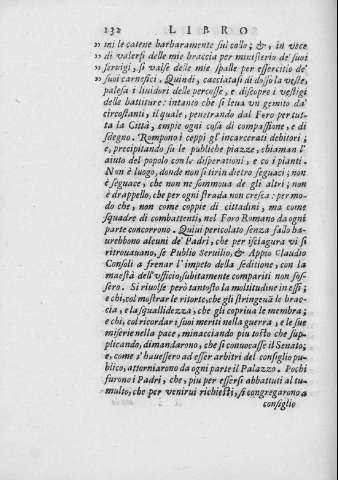 132 LIBRO
” mi le catene barbaramente sul collo; &, in vece
” di valersi delle mie braccia per ministerio de' suoi
” seruigi, si valse delle mie spalle per essercitio de'
” suoi carnefici. Quindi, cacciatasi di dosso la veste,
palesa i liuidori delle percosse, e discopre i vestigi
delle battiture: intanto che si leua vn gemito da'
circostanti, il quale, penetrando dal Foro per tut-
ta la Città, empie ogni cosa di compassione, e di
sdegno. Rompono i ceppi gl'incarcerati debitori;
e, precipitando su le publiche piazze, chiaman l'
aiuto del popolo con le disperationi, e co i pianti.
Non è luogo, donde non si tirin dietro seguaci; non
è seguace, che non ne sommoua de gli altri; non
è drappello, che per ogni strada non cresca: per mo-
do che, non come coppie di cittadini, ma come
squadre di combattenti, nel Foro Romano da ogni
parte concorrono. Quiui pericolato senza fallo ha-
urebbono alcuni de' Padri, che per isciagura vi si
ritrouauano, se Publio Seruilio, & Appio Claudio
Consoli a frenar l'impeto della seditione, con la
maestà dell'vfficio, subitamente compariti non fos-
sero. Si riuolse però tantosto la moltitudine in essi;
e chi, col mostrar le ritorte, che gli stringeuã le brac-
cia, e la squallidezza, che gli copriua le membra;
e chi, col ricordar i suoi meriti nella guerra, e le sue
miserie nella pace, minacciando piu tosto che sup-
plicando, dimandarono, che si conuocasse il Senato;
e, come s'hauessero ad esser arbitri del consiglio pu-
blico, attorniarono da ogni parte il Palazzo. Pochi
furono i Padri, che, piu per essersi abbattuti al tu-
multo, che per venirui richiesti, si congregarono a
consiglio